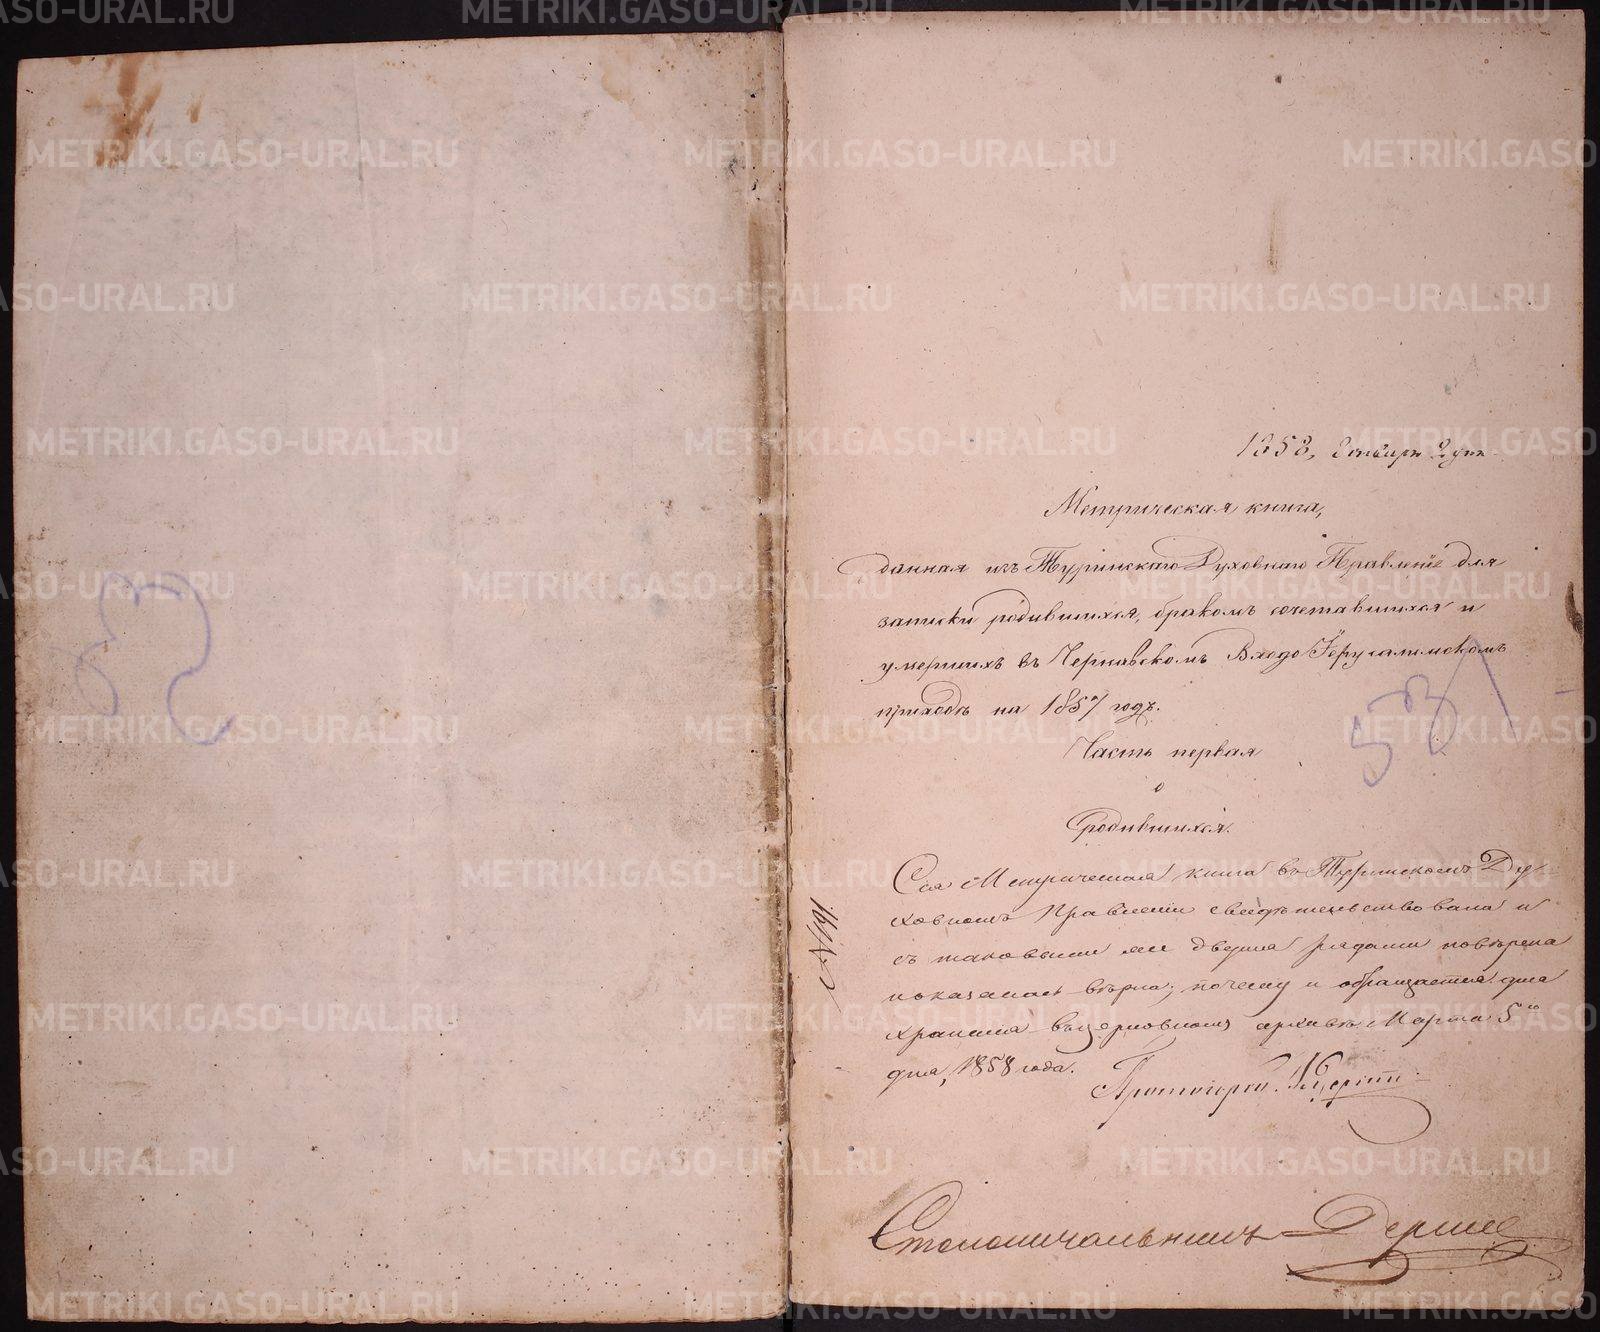 1858, Января 2 дня
Метрическая книга,
данная изъ Туринскаго Духовнаго Правленіе для
записки родившихся, бракомъ сочетавшихся и
умершихъ въ Чернавскомъ Входо Іерусалимскомъ
приходѣ на 1857 годъ.
Часть первая
о
родившихся.
531
Сія Метрическая книга въ Туринскомъ Ду-
ховномъ Правленіи свидѣтельствована и
съ таковыми же двумя рядами повѣрена
показалась вѣрна; почему и обращается для
храненія въ церковномъ архивѣ Марта 5го
дня, 1858 года.
Протоіерей
Столоначальникъ
METRIKI.GASO-URAL.RU